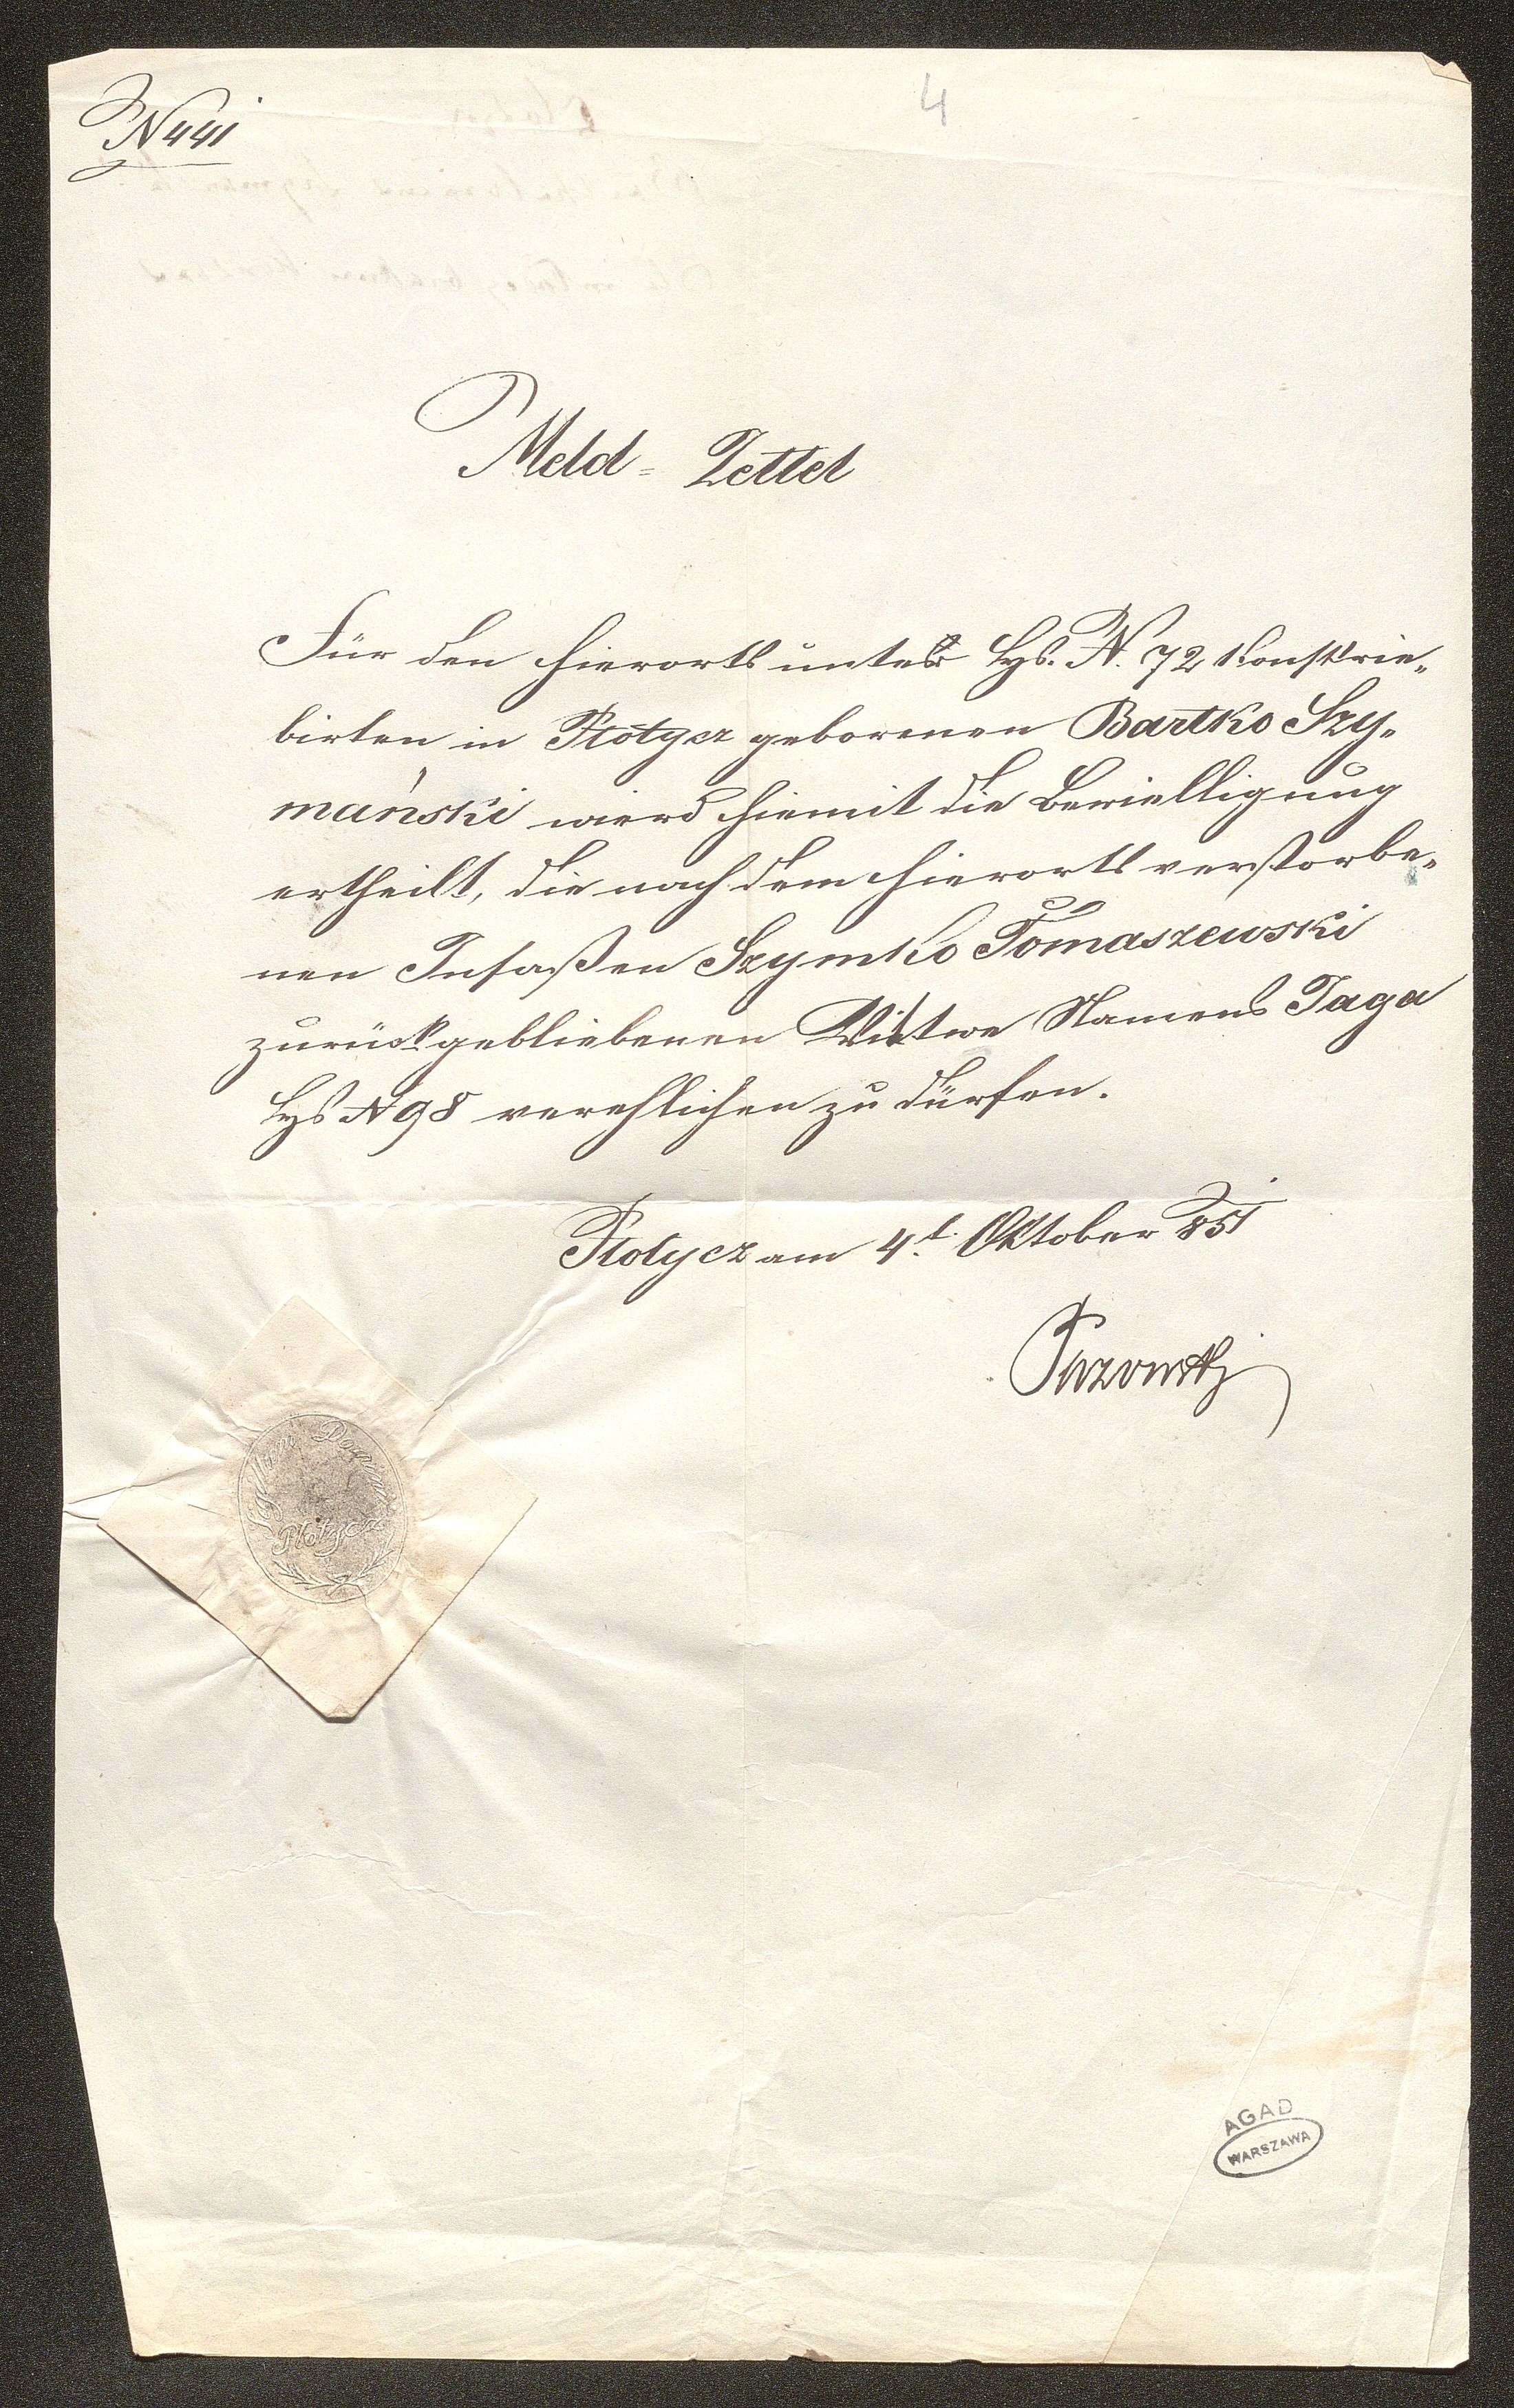 N 441
4
Meld = Zettel
Für den hierorts unter Hs. N. 72 Konskrie„
birten in Płotycz geborenen Bartko Szy„
mański wird hiemit die Bewielligung
ertheilt, die nach dem hierorts verstorbe„
nen Insaßen Szymko Tomaszewski
zurückgebliebenen Wittwe Namens Taga
Hs N 98 verehlichen zu dürfen.
Płotycz am 4t. Oktober 851
Płotycz
AGAD
WARSZAWA